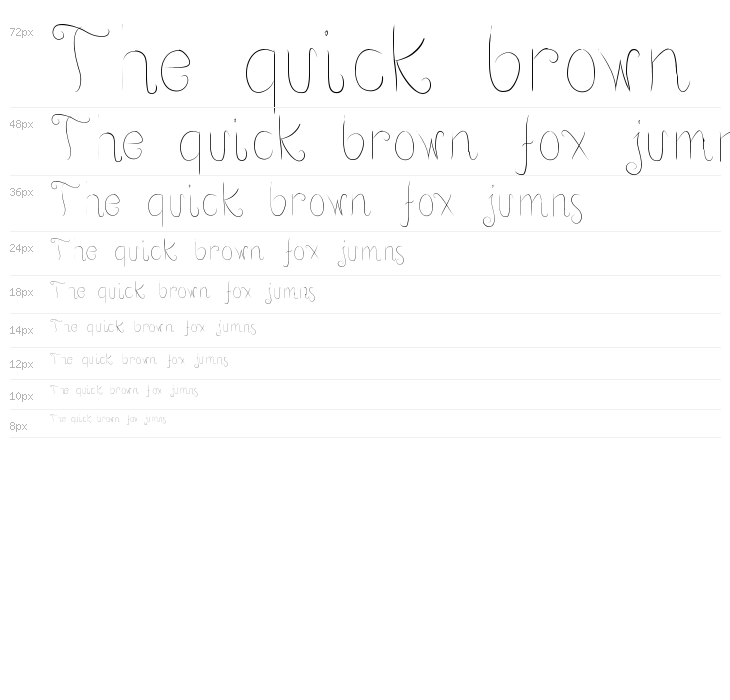 72px The quick brown
48px The quick brown fox jumn
36px The quick brown fox jumns
24px The quick brown fox jumns
18px The quick brown fox jumns
14px The quick brown fox jumns
12px The quick brown fox jumns
10px The quick brown fox jumns
8px The quick brown fox jumns